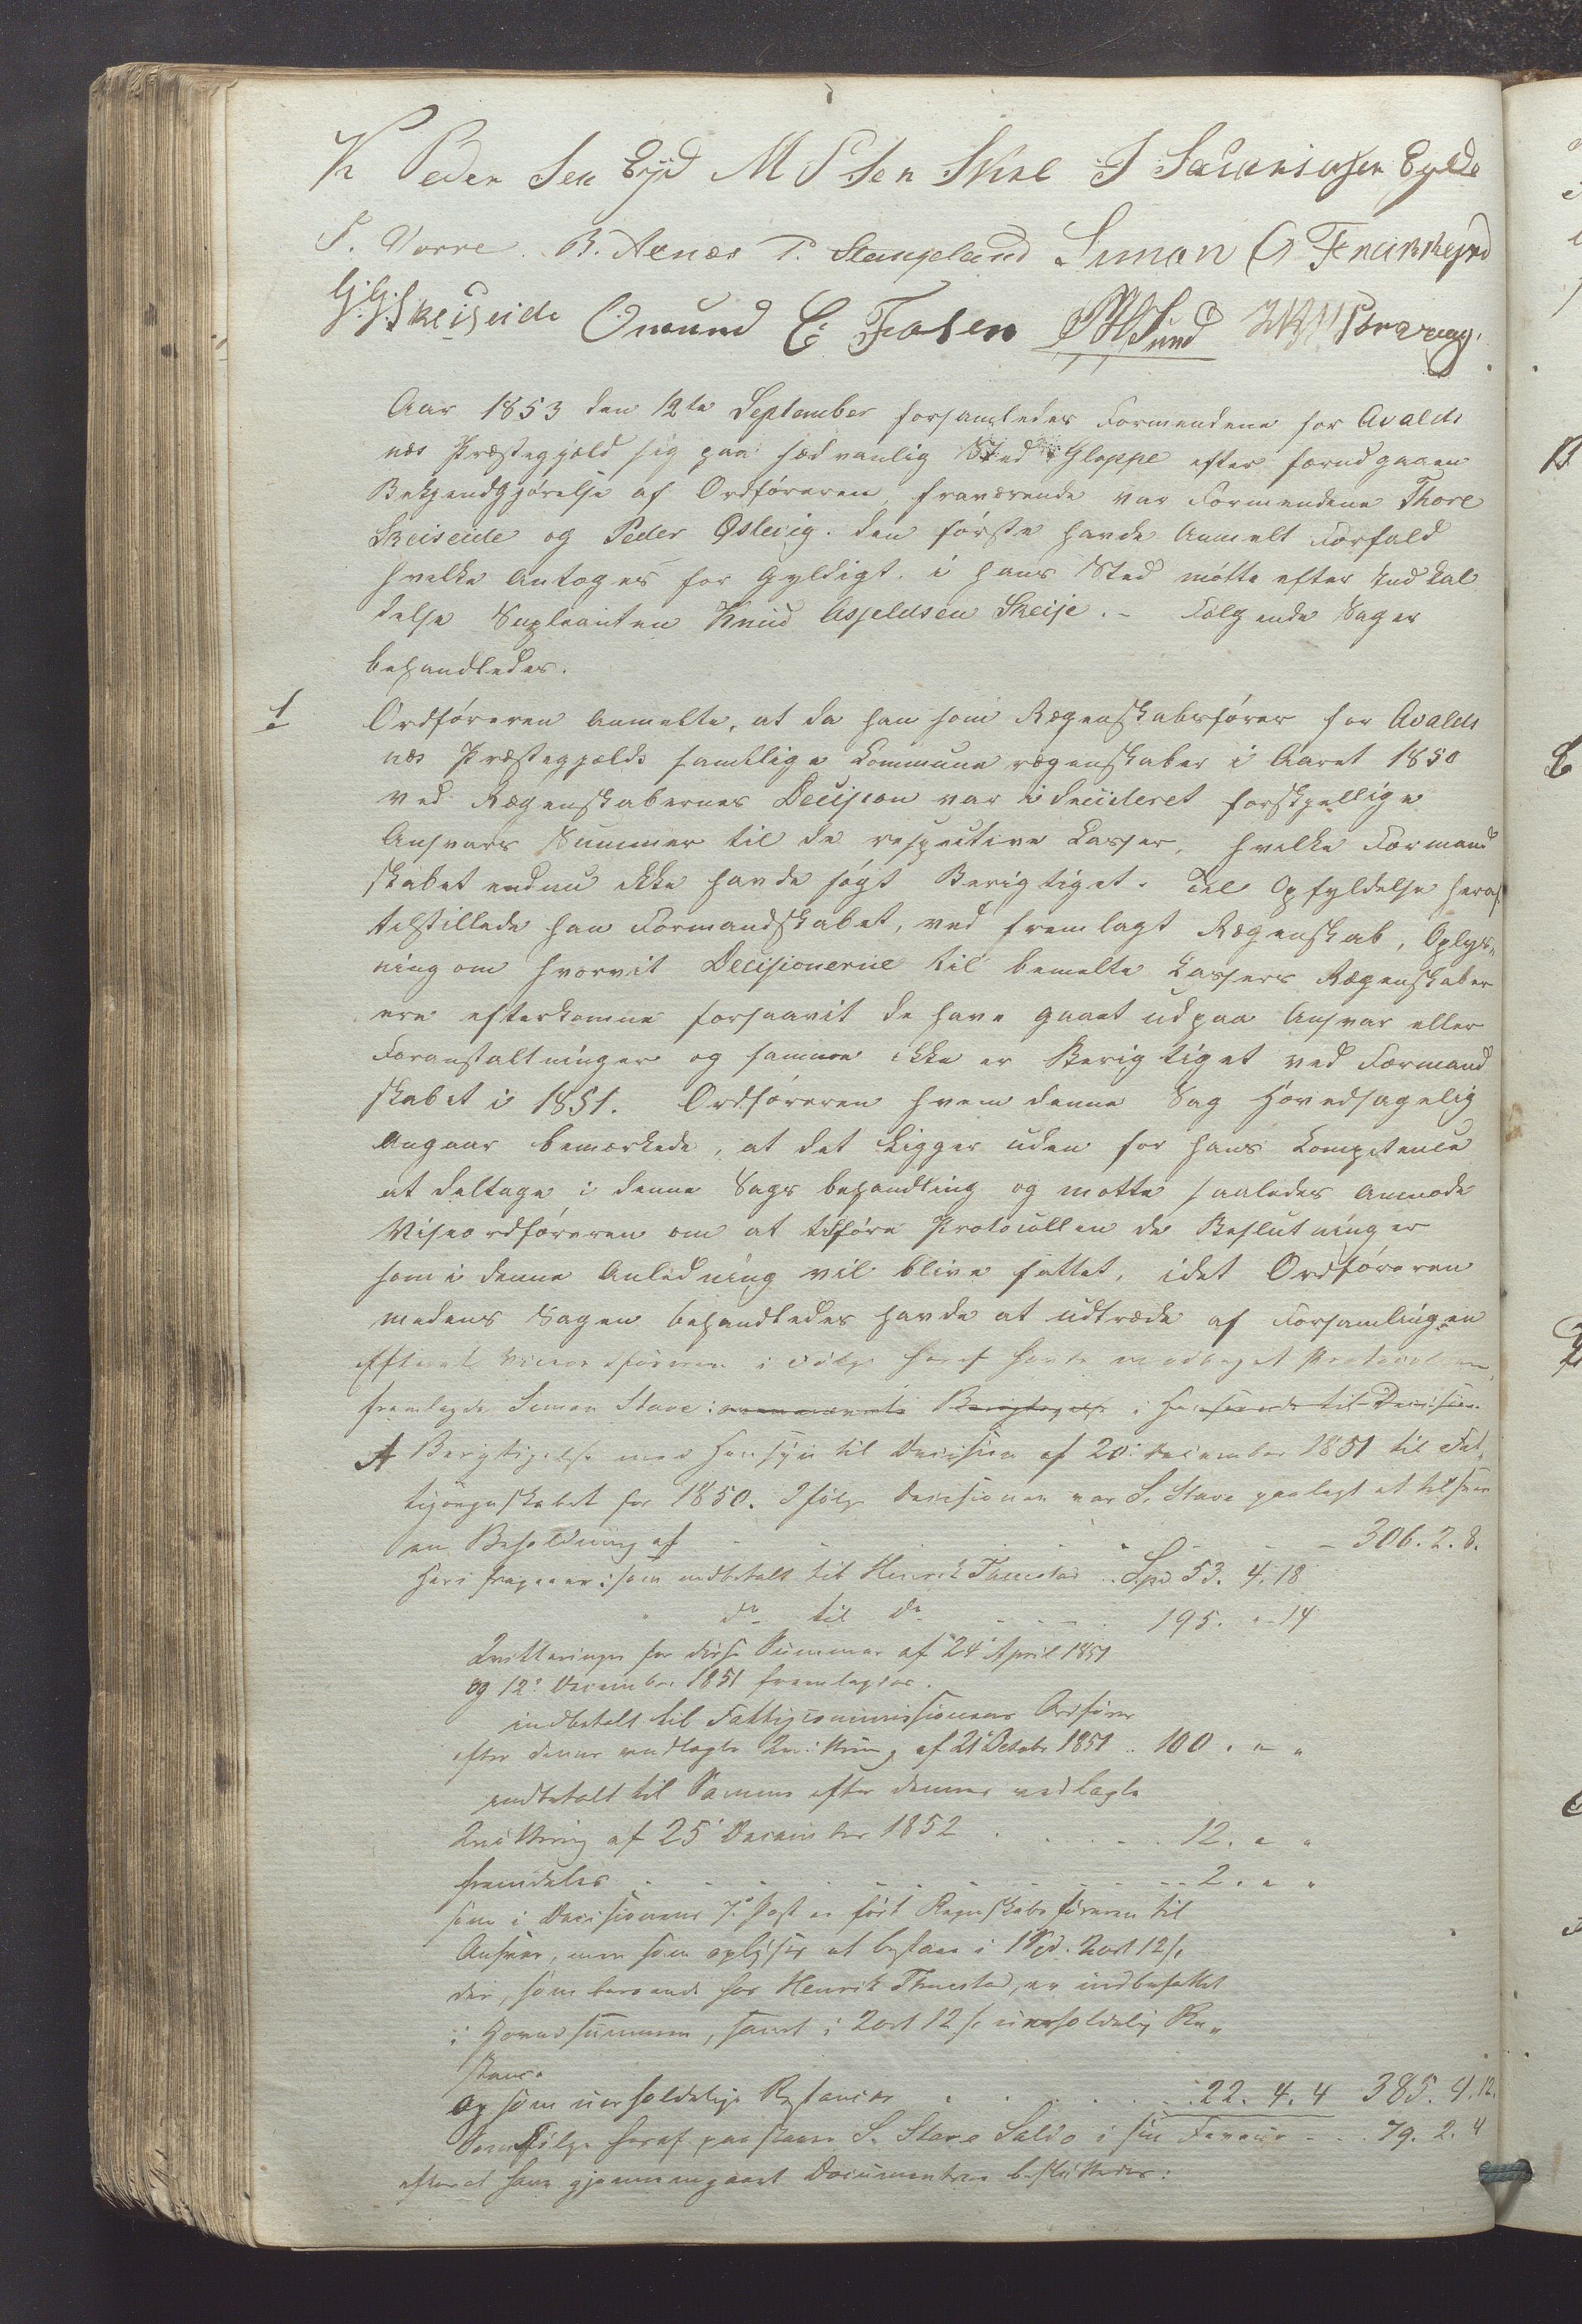 K Peder Sen Eyd M S Sen Skre S Sacariasen Eyde
S. Vorre. B. Aenæs P. Stangeland Simon O Frækkejed
G. G. Skeiseide Omund E. Fosen Sund
Aar 1853 den 12te September forsamledes Formendene for Avalds
nes Præstegjeld sig paa sædvanlig Sted Gloppe efter forud gaaen
Bekjendtgjörelse af Ordföreren, fraværende var Formendene Thore
Skeiseide og Peder Östevig. den förste havde Anmelt Forfald
hvelke Antoges for Gyldigt. i hans Sted mötte efter Ind kal
delse Supleanten Knud Asjeldsen Skeije. - Fölgende Sager
behandledes.
1 Ordföreren Anmelte, at da han som Regenskabsförer for Avalds
nes Præstegjelds samtlige Commune regenskaber i Aaret 1850
ved Regenskabernes Decision var i decideret forskjellige
Ansvars Summer til de respective Casser, hvelke Formand
skabet endnu ikke havde sögt Berigtiget. Til Opfyldelse heraf
tilstillede han Formandskabet, ved fremlagt Regenskab, Oplys„
ning om hvorvit Decisionerne til bemelte Cassers Regenskaber
ere efterkomne forsaavit de have gaaet ud paa Ansvar eller
Foranstaltninger og samme ikke er Berigtiget ved Formand
skabet i 1851. Ordföreren hvem denne Sag Hovedsagelig
Angaar bemærkede, at det Ligger uden for hans Competence
at deltage i denne Sags behandling og motte saaledes Anmode
Viseordföreren om at tilföre Protocollen de Beslutninger
som i denne Anledning vil blive fattet, idet Ordföreren
medens Sagen behandledes havde at udtræde af Forsamlingen
Efterat Viceordföreren i Fölge heraf havde modtaget Protocollen,
fremlagde Simon Stave: Berigtigelse i Henseende til Decision
A Berigtigelse med Hensyn til Decision af 20 December 1851 til Fat„
tigregnskabet for 1850. Ifölge Decisionen var S. Stave paalagt at tilsvare
en Beholdning af - - - 306. 2. 8.
Heri fragaaer: som indbetalt til Henrik Tuestad Spd 53. 4. 18
do til do 195. „ 14
Qvitteringer for disse Summer af 24 April 1851
og 12 December 1851 fremlagdes.
indbetalt til Fattigcommissionens Ordförer
efter denne vedlagte Qvittering af 21 Octobr 1851 .. 100 . „ „
indbetalt til Samme efter dennes vedlagte
Qvittering af 25 December 1852 . . . 12. „ „
fremdeles - - - 2. „ „
som i Decisionens 7. Post er fört Regnskabsföreren til
Ansvar, men som oplyses at bestaae i 1 Spd. 2 ort 12 s.
der, som beroende hos Henrik Tuestad, er indbefattet
i Hovedsummen, samt i 2 ort 12 s. uerholdelig Re„
stance
og som uerholdelige Restancer . . . 22. 4. 4 385. 4. 12.
Som Fölge heraf paastaaer S. Stave Saldo i sin Faveur - - 79. 2. 4
efter at have gjennemgaaet Documenterne besluttedes: